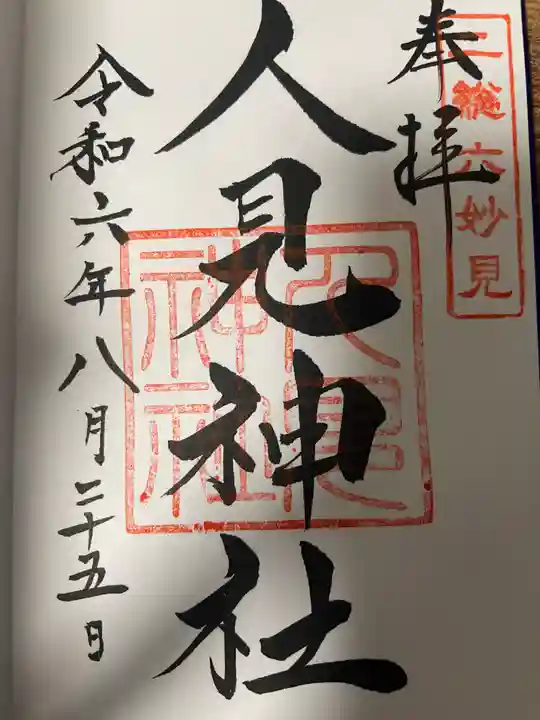 奉拝
三総六妙見
人見神社
人見神社
令和六年八月二十五日